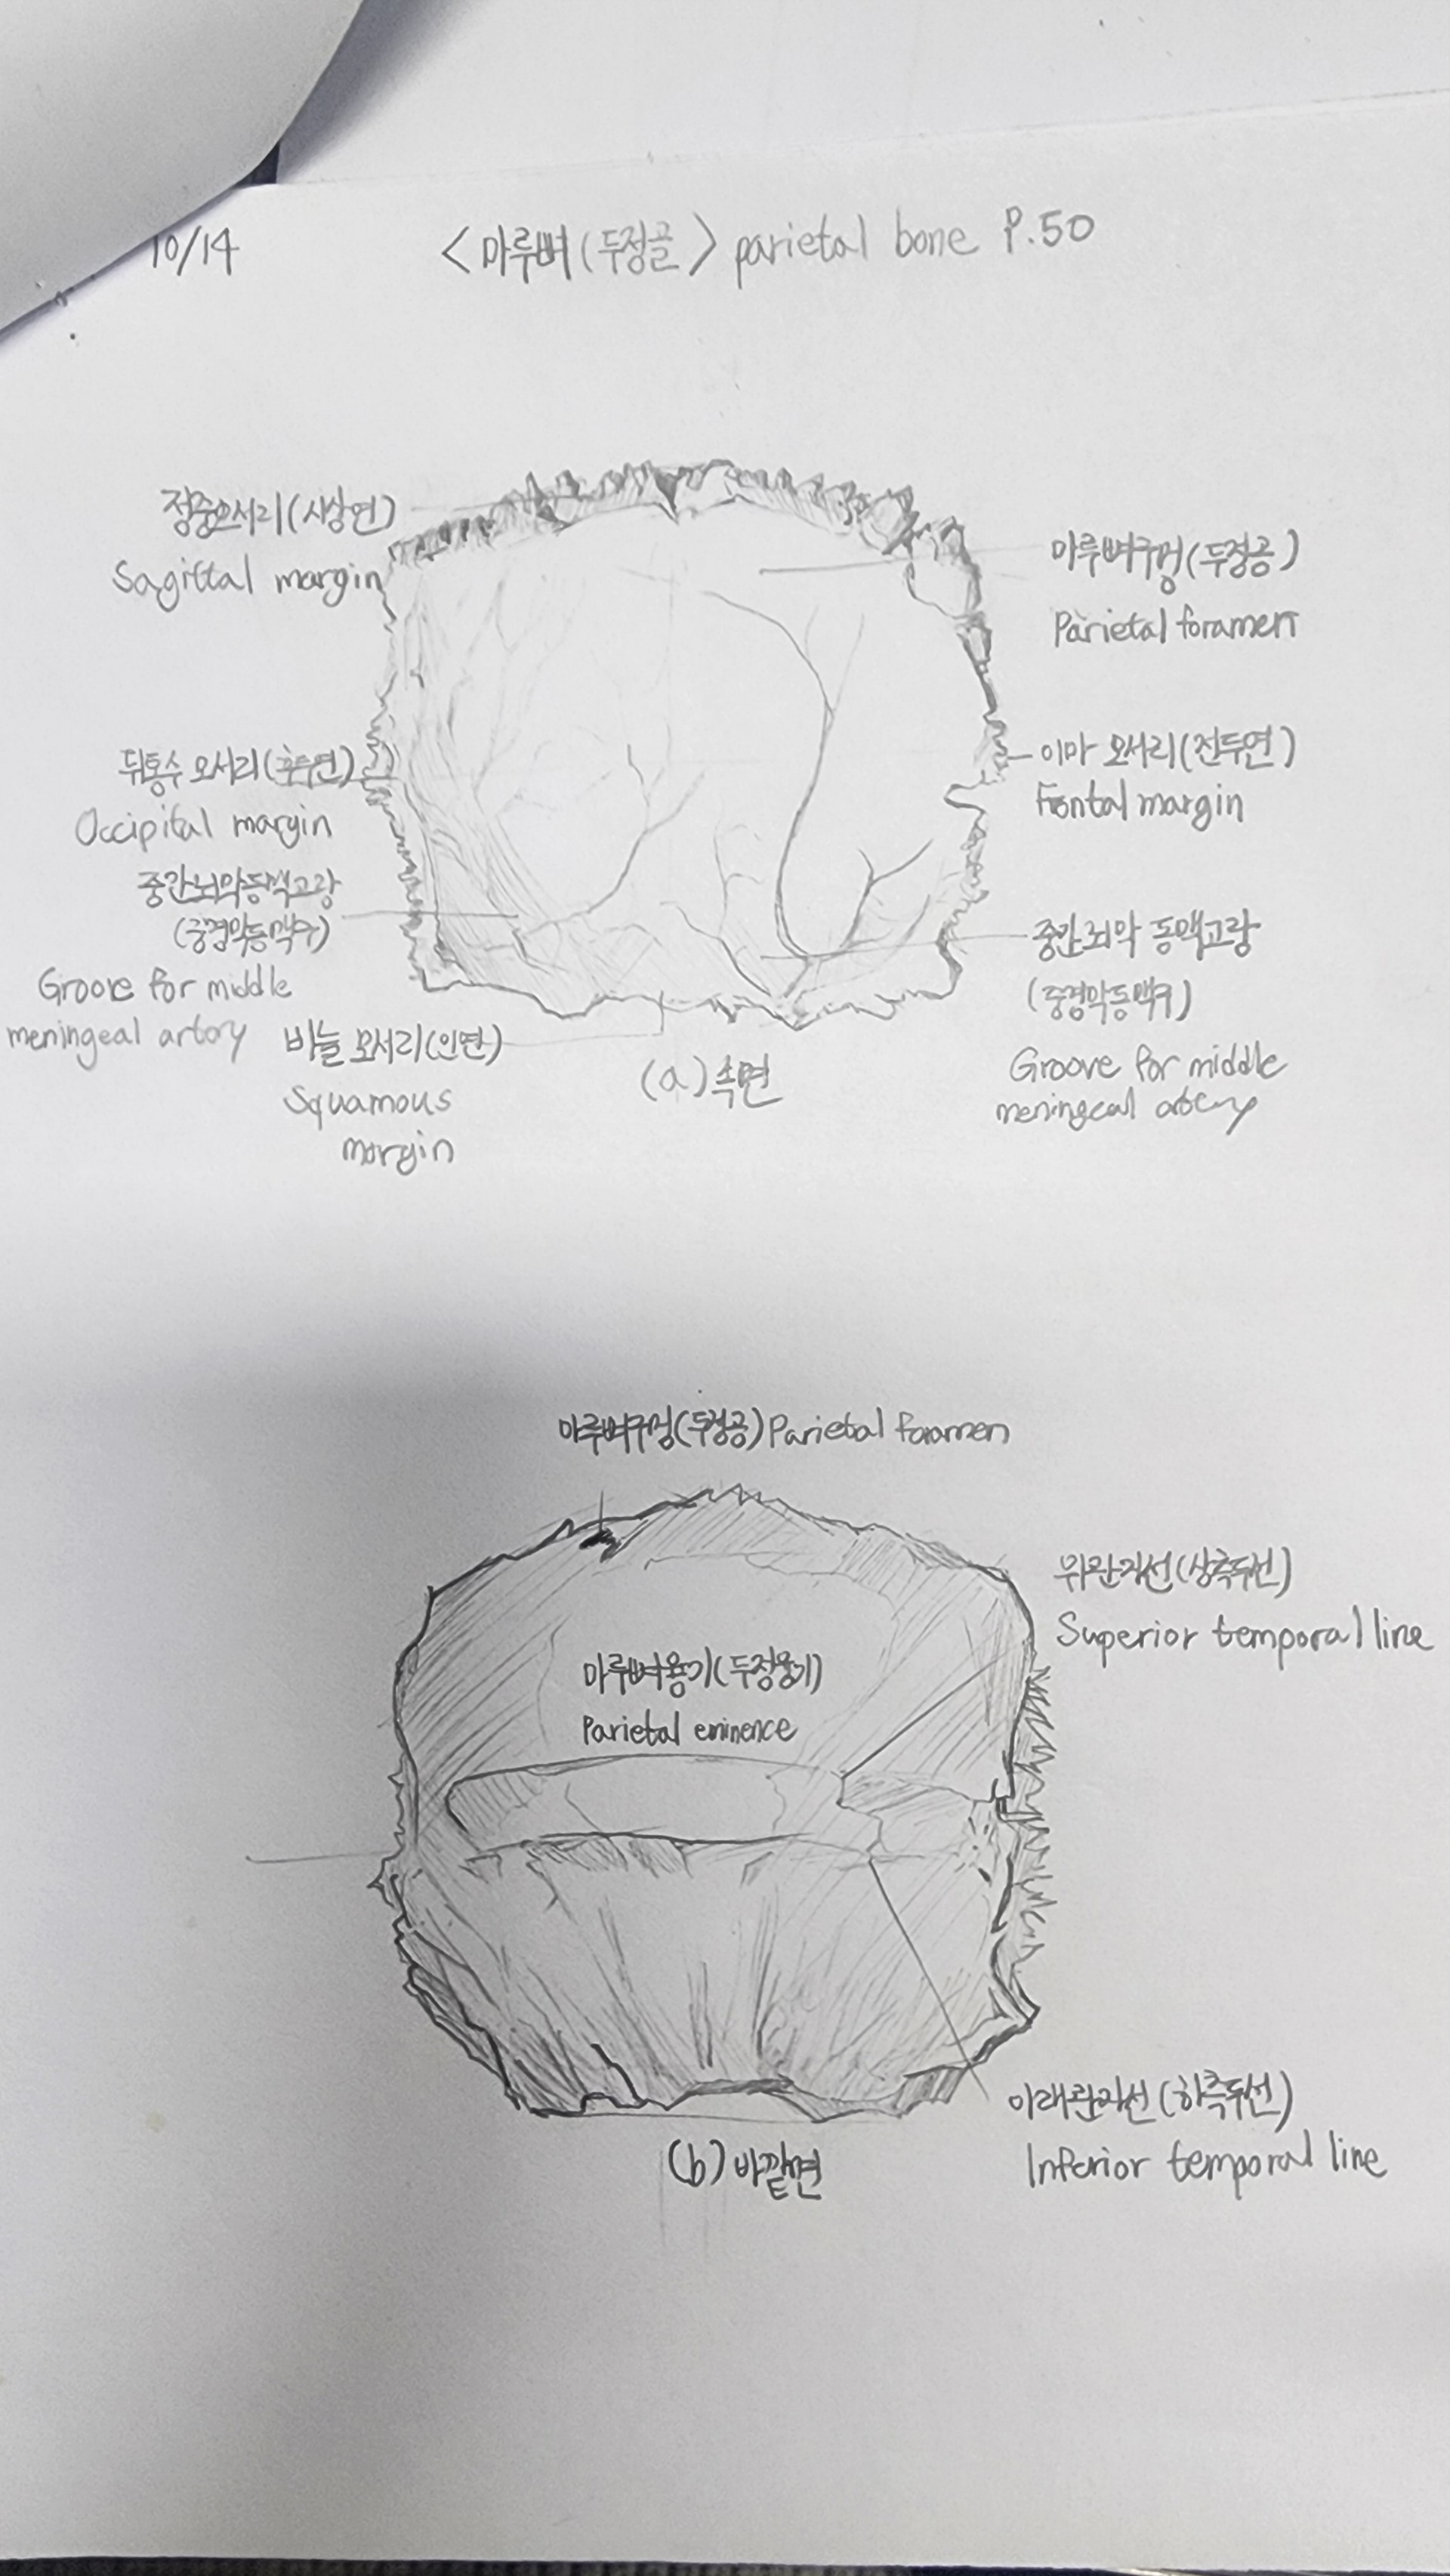 10/14
<마루뼈(두정골> parietal bone P.50
정중모서리(시상연)
Sagittal margin
마루뼈구멍(두정공)
Parietal foramen
뒤통수 모서리(후두연)
Occipital margin
이마 모서리(전두연)
Frontal margin
중간뇌막동맥고랑
(중경막동맥구)
Groove for middle
meningeal artory
중간뇌막 동맥고랑
(중경막동맥구)
Groove for middle
meningeal artery
비늘 모서리(인연)
Squamous
margin
(a) 속면
마루뼈구멍(두정공) Parietal foramen
위관자선(상측두선)
Superior temporal line
마루뼈융기(두정융기)
Parietal eminence
아래관자선(하측두선)
Inferior temporal line
(b) 바깥면